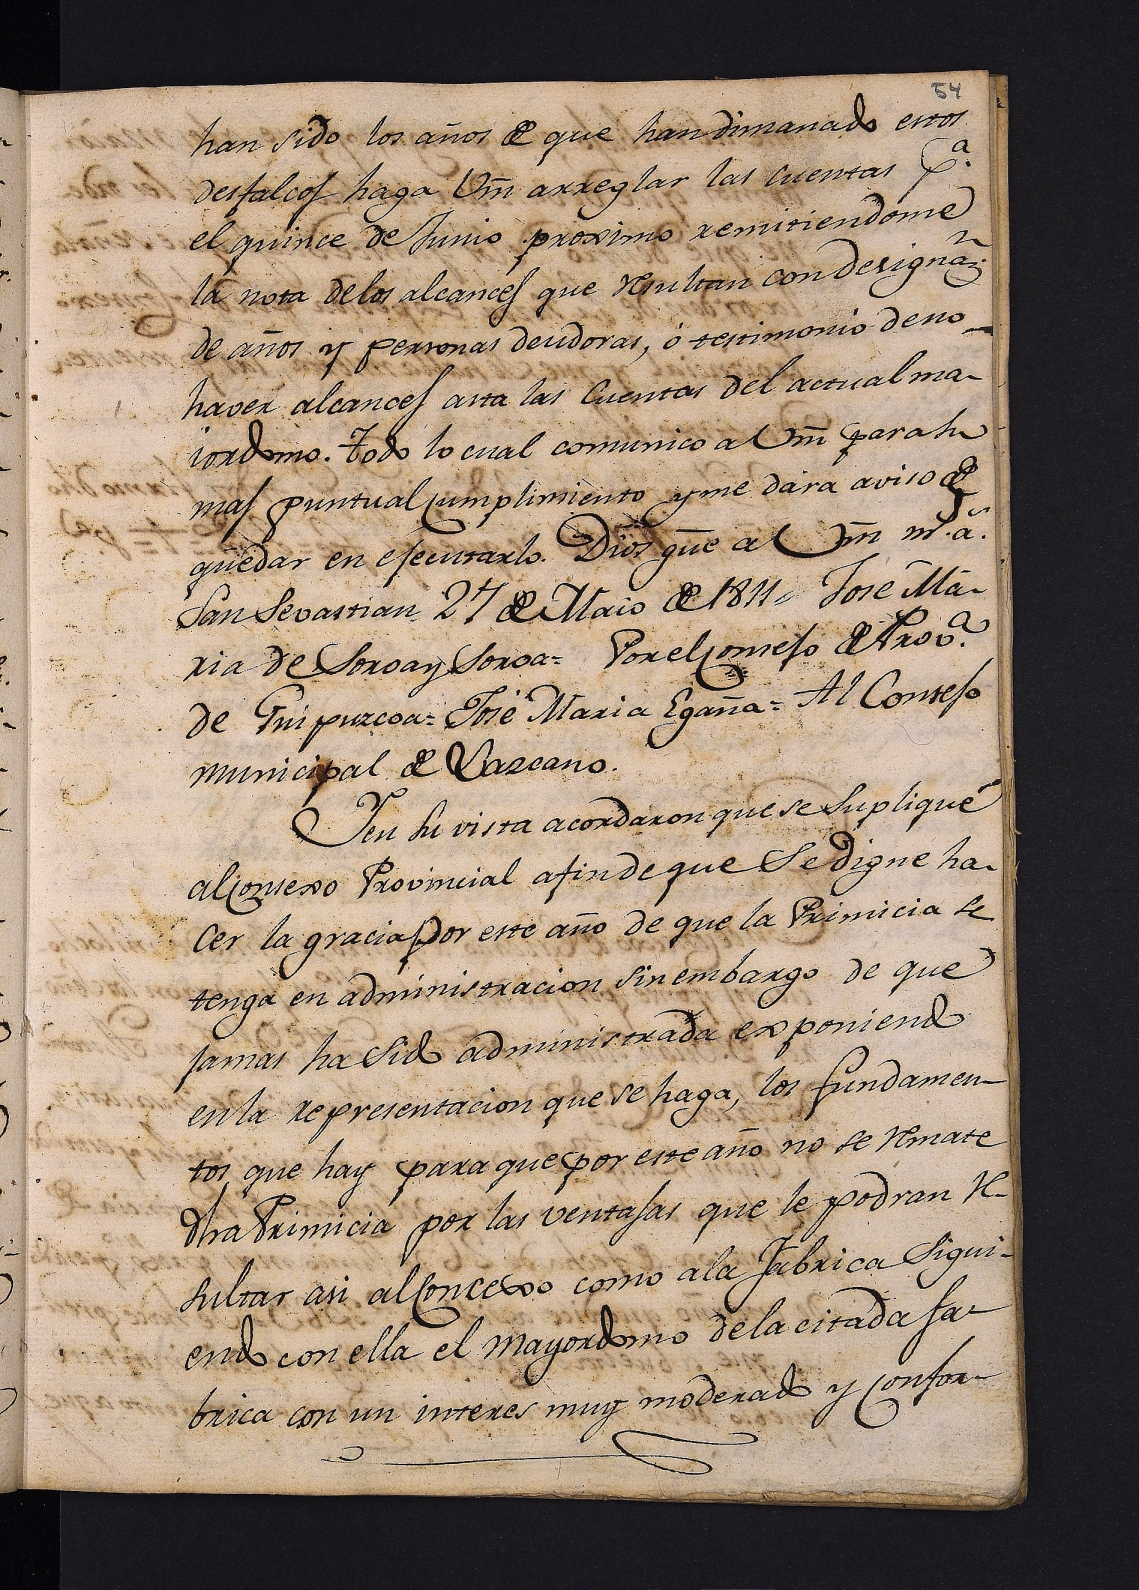 54
han sido los años de que han dimanado estos
desfalcos haga Vm̄ arreglar las cuentas pª.
el quince de Junio proximo remitiendome
la nota delos alcances que resultan con designaō̄n
de años y personas deudoras, ó testimonio de no
haver alcances asta las Cuentas del actual ma-
iordomo. Todo lo cual comunico a Vm̄ para su
mas puntual cumplimiento y me dara aviso de
quedar en ejecutarlo. Dios gūe a Vm̄ mˢ. aˢ.
San Sevastian 27 de Maio de 1811 = José Ma-
ria de Soroa y Soroa = Por el Consejo de Provª.
de Guipuzcoa = José Maria Egaña = Al Consejo
municipal de Lazcano.
Y en su vista acordaron que se suplique
al Consexo Provincial afin de que se digne ha-
cer la gracia por este año de que la Primicia se
tenga en administracion sin embargo de que
jamas ha sido administrada exponiendo
en la representacion que se haga, los fundamen-
tos que hay para que por este año no se remate
dha Primicia por las ventajas que le podran re-
sultar asi al Concexo como a la Fabrica sigui-
endo con ella el Mayordomo de la citada fa-
brica con un interes muy moderado y confor-